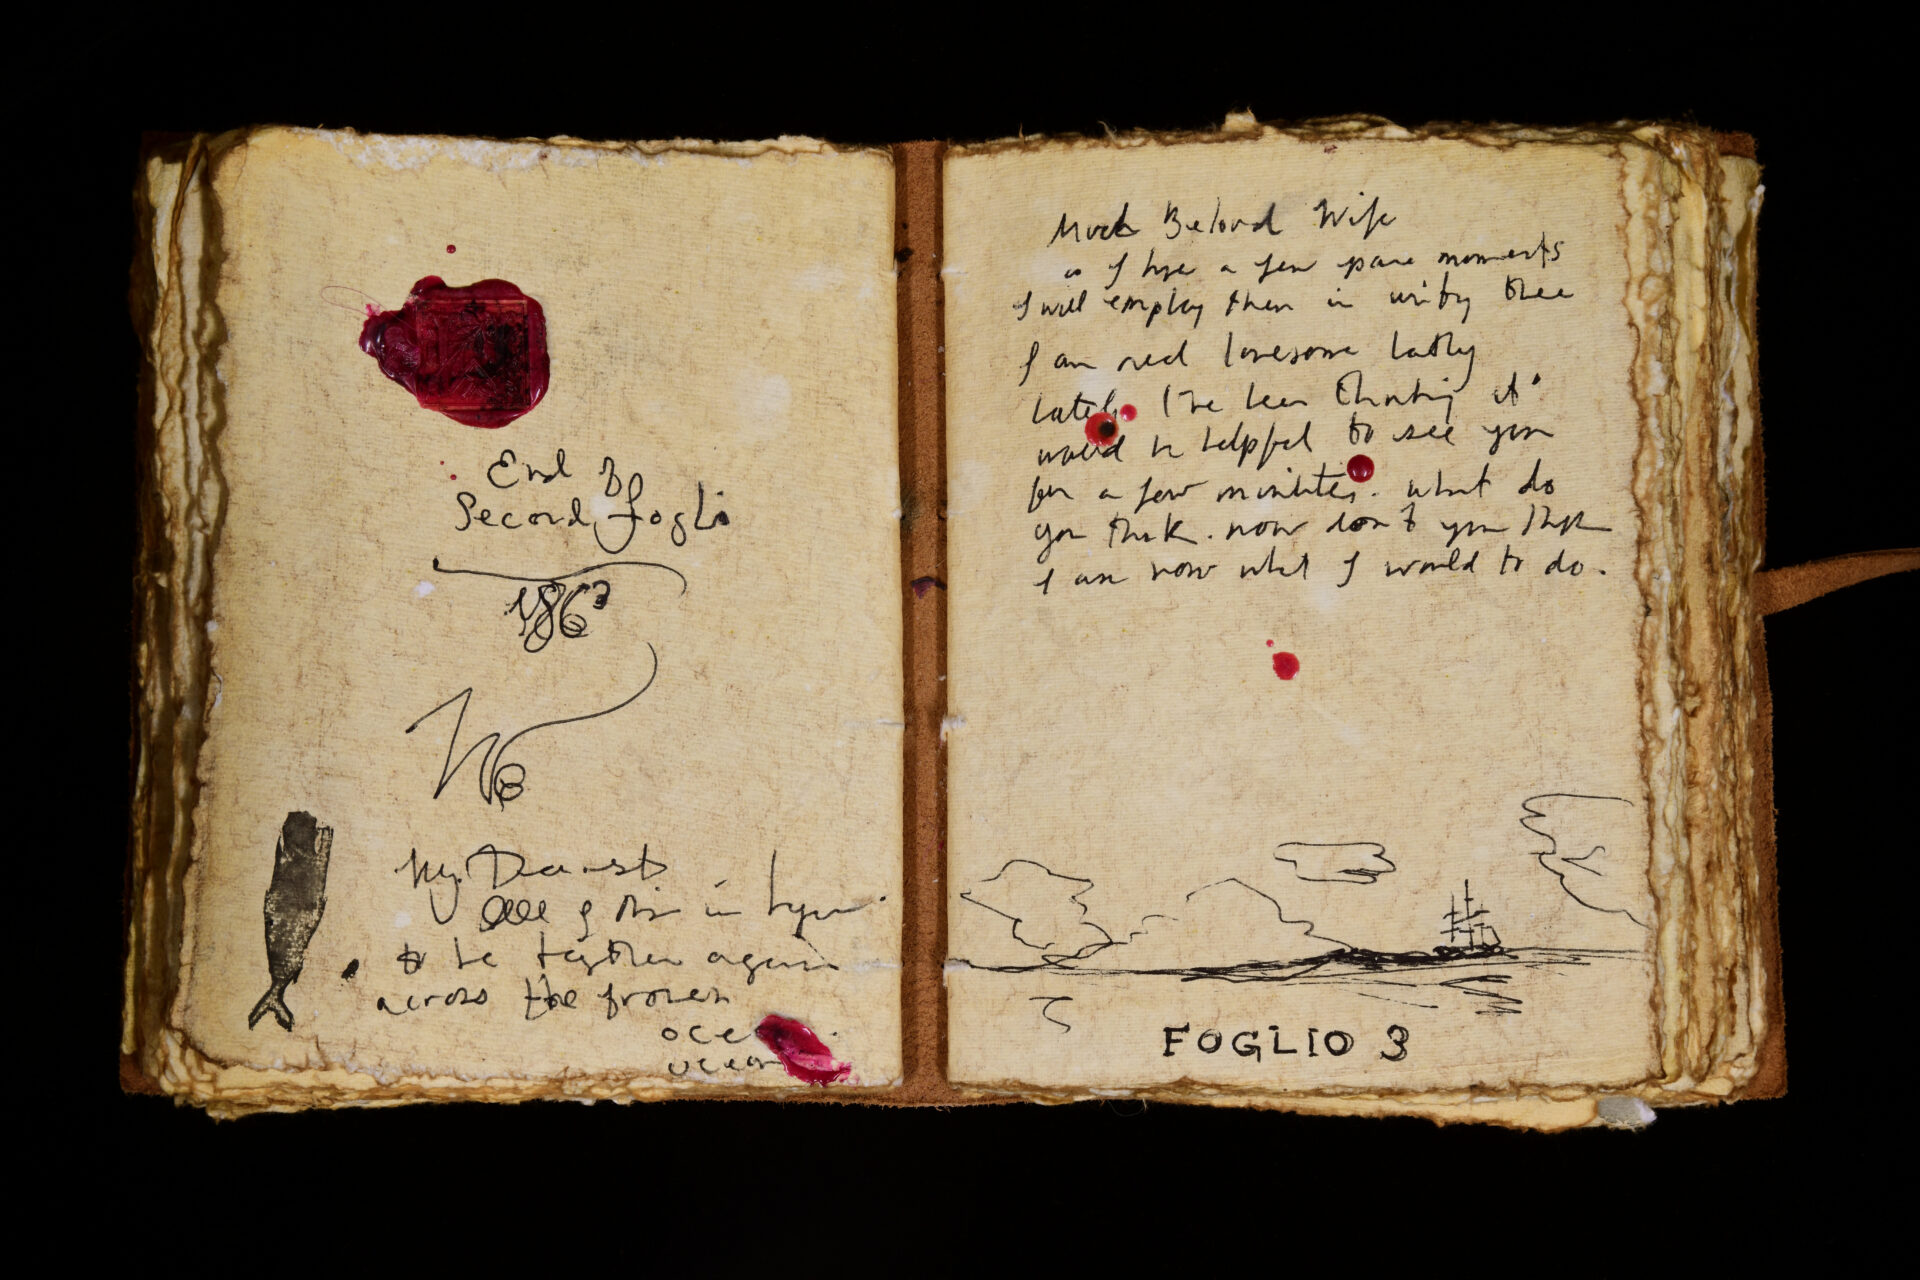 End of
Second foglio
1863
My Dearest
be together again
across the frozen
oce
ocean
Much Beloved Wife
as I hve a few spare moments
I will employ them in writing thee
I am real lonesome lately
lately I've been thinking it
would be helpful to see you
for a few minutes. what do
you think. now don't you think
I am now what I would to do.
FOGLIO 3